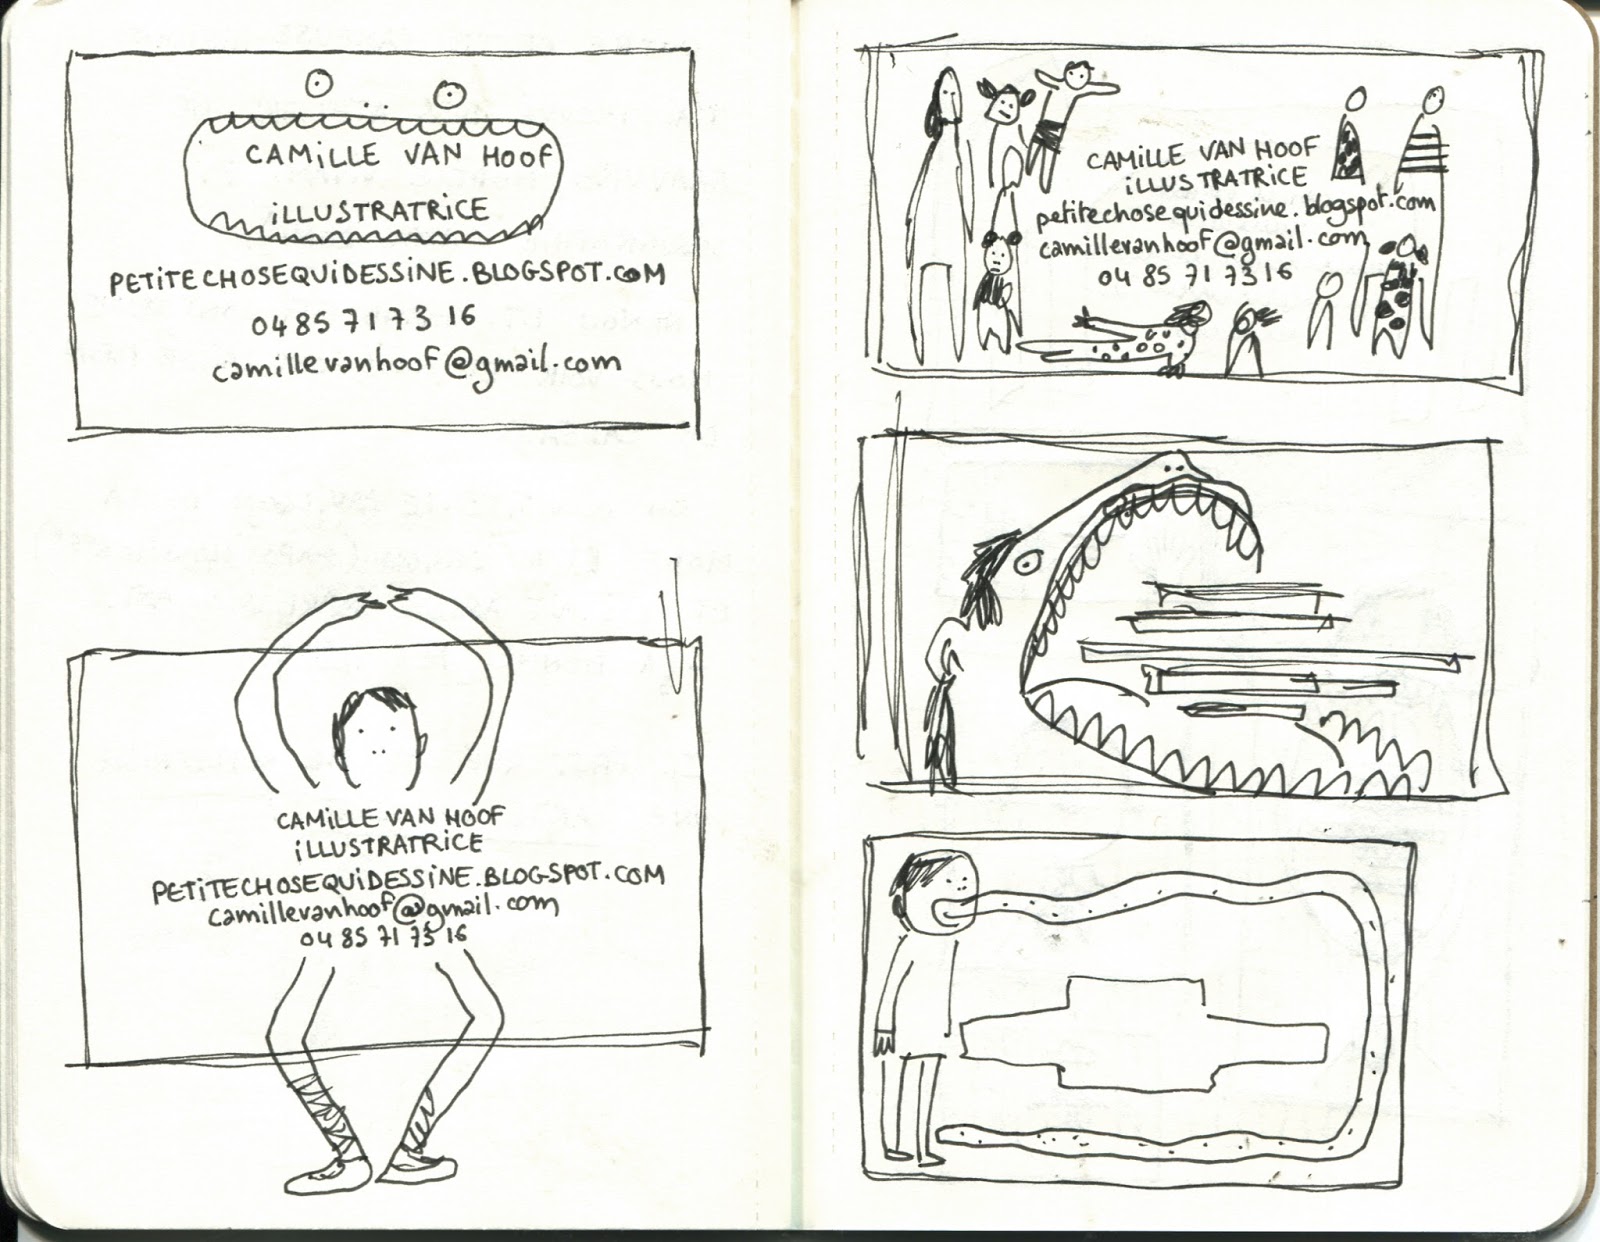 CAMiLLE VAN HOOF
iLLUSTRATRiCE
PETiTECHOSEQUiDESSiNE.BLOGSPOT.COM
04 85 71 73 16
camillevanhoof@gmail.com
CAMiLLE VAN HOOF
iLLUSTRATRiCE
PETiTECHOSEQUiDESSiNE.BLOGSPOT.COM
camillevanhoof@gmail.com
04 85 71 73 16
CAMiLLE VAN HOOF
iLLUSTRATRiCE
petitechosequidessine.blogspot.com
camillevanhoof@gmail.com
04 85 71 73 16